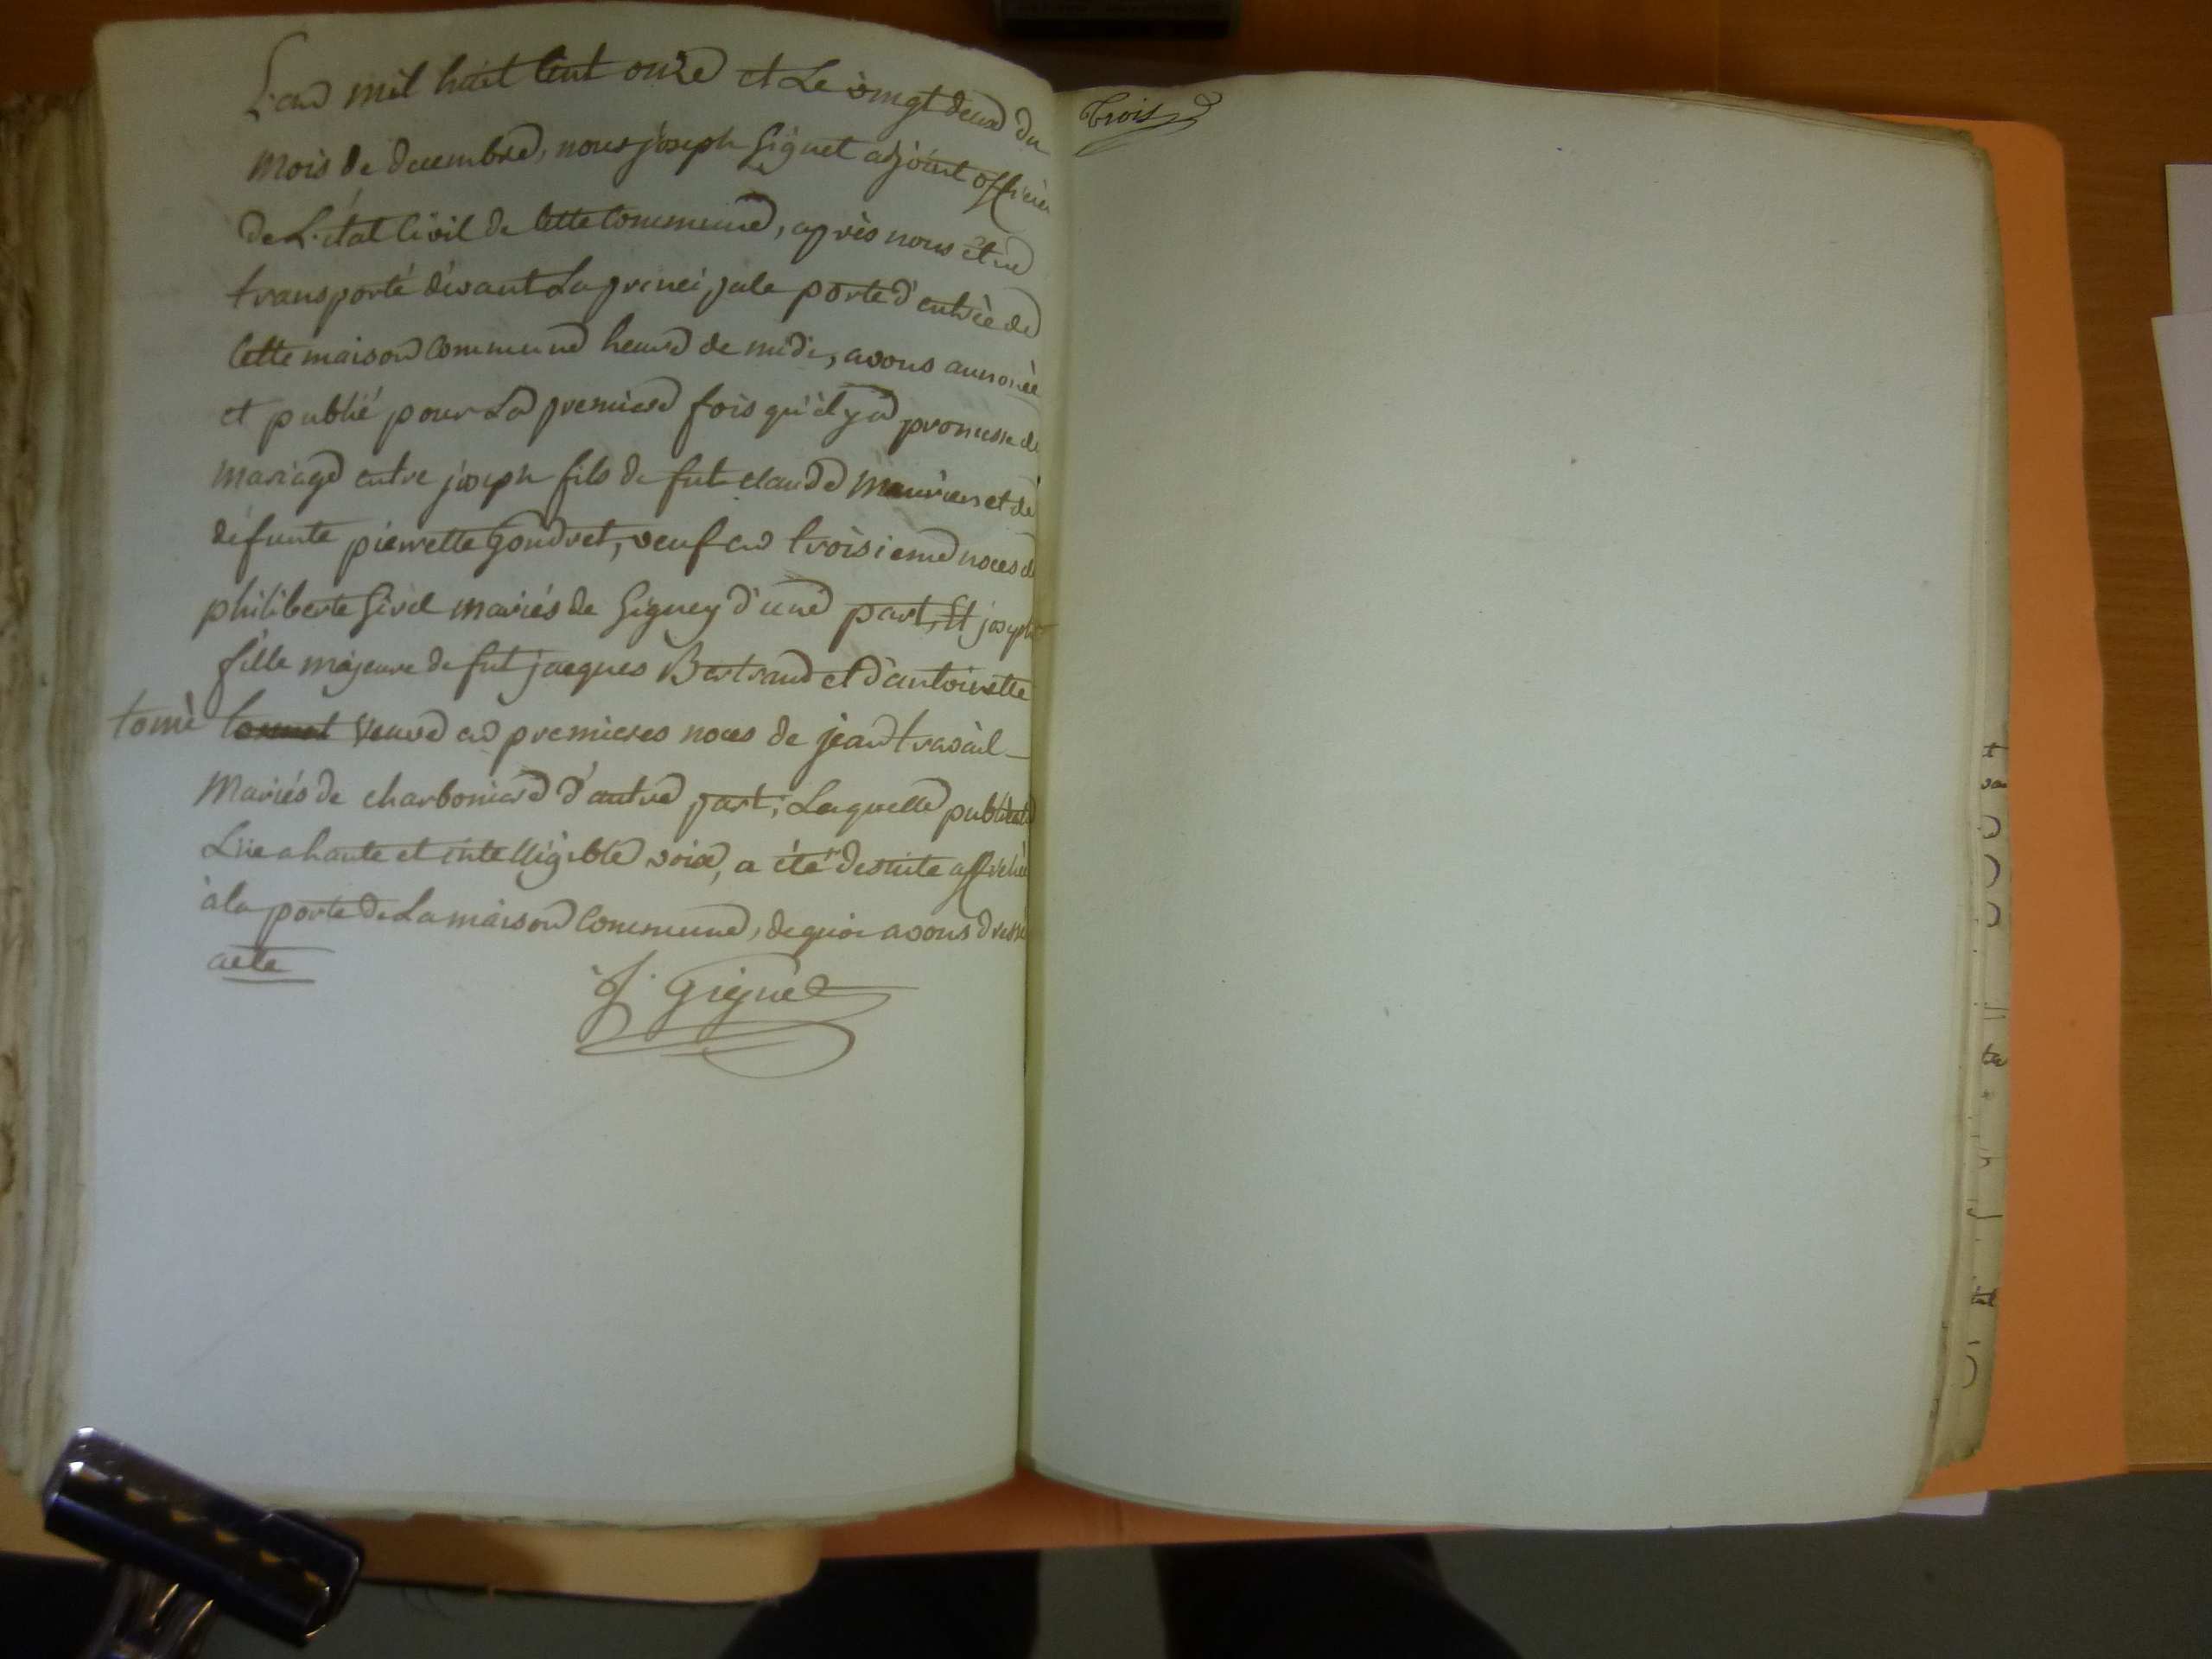 L'an mil huit cent onze et Le vingt deux du
mois de decembre, nous joseph Gignet adjoint officier
de L'état Civil de Cette Commune, après nous être
transporté devant La principale porte d'entrèe de
Cette maison Commune heure de midi, avons annoncé
et publié pour La premiere fois qu'il y a promesse de
mariage entre joseph fils de fut claude et de
defunte pierrette Gondret, veuf en troisieme noces de
philiberte Girel mariés de Gigney d'une part, Et joseph
fille majeure de fut jacques Bertrand et d'antoinette
tomè veuve en premieres noces de jean travail
Mariés de charboniere d'autre part; Laquelle
Lüe a haute et intelligible voix, a été desuite affichée
à la porte de La maison Commune, de quoi avons dressé
acte
J. Gignet
trois